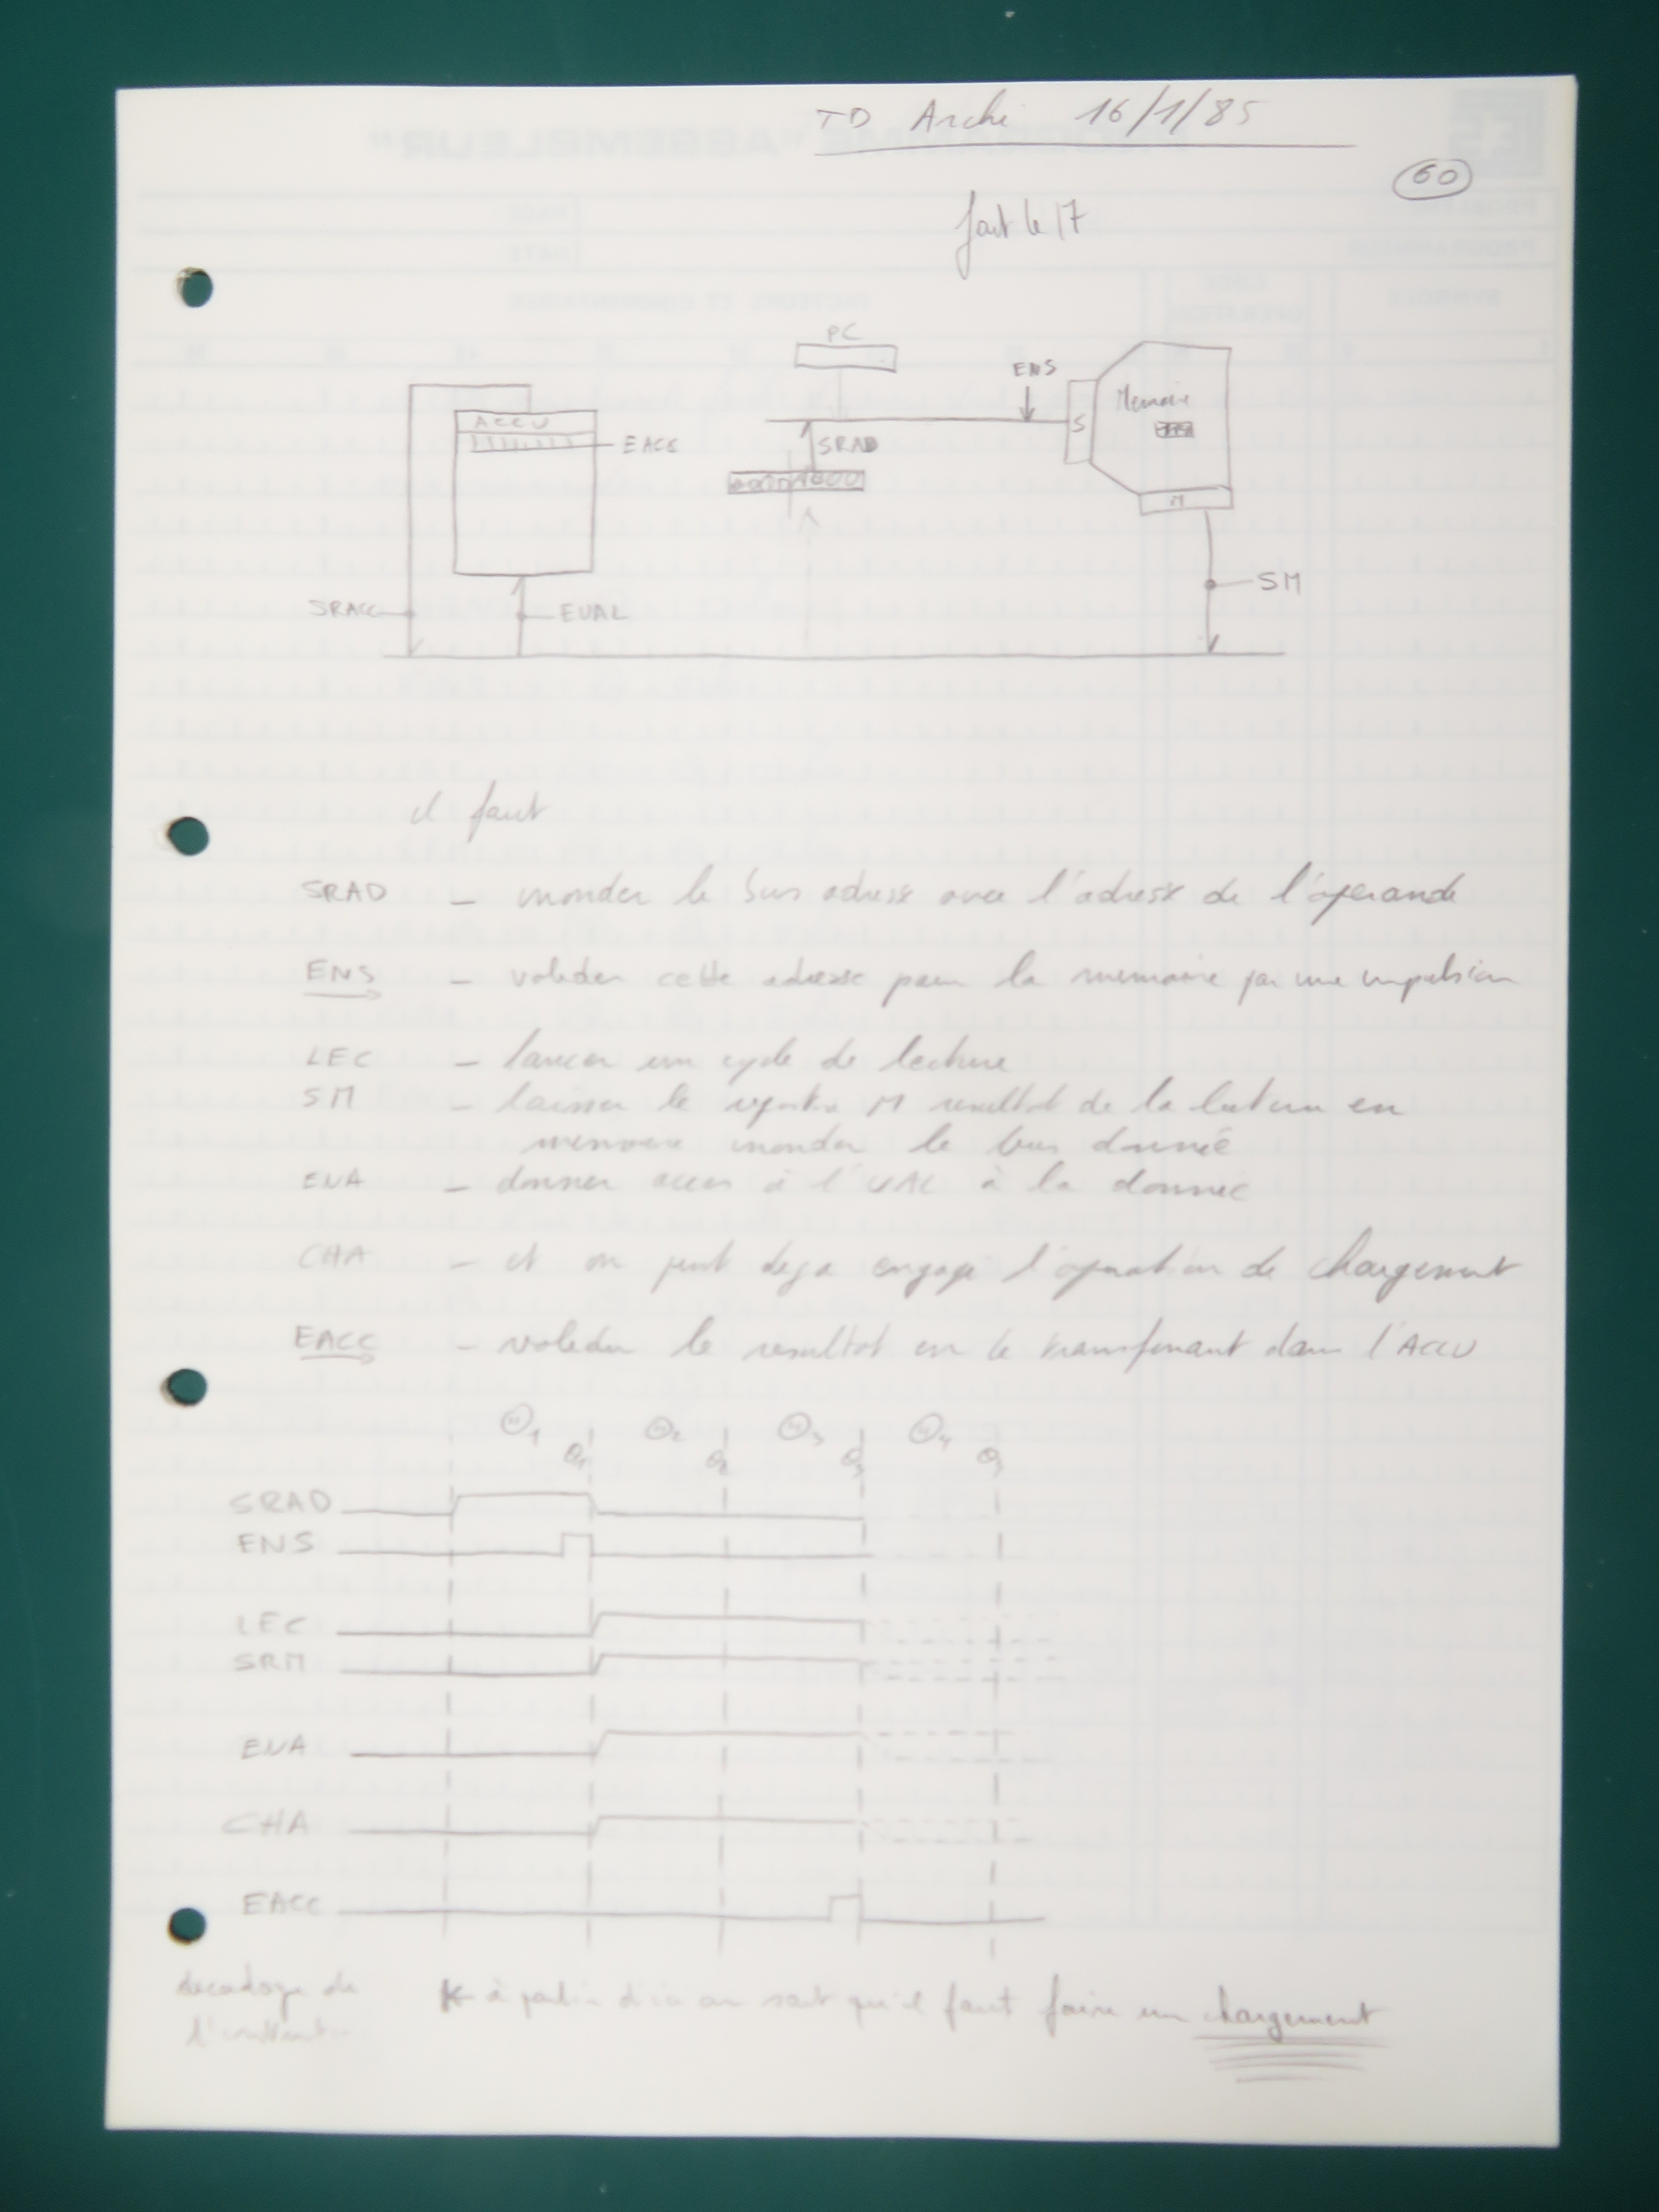 TD Archi 16/1/85
60
fait le 17
PC
ENS
Memoire
ACCU
S
EACC
SRAD
M
SM
SRACC
EUAL
il faut
SRAD - inonder le bus adresse avec l'adresse de l'operande
ENS - valider cette adresse pour la memoire par une impulsion
LEC - lancer un cycle de lecture
SM - laisser le registre M resultat de la lecture en
memoire inonder le bus donnée
ENA - donner acces à l'UAL à la donnée
CHA - et on peut deja engager l'operation de chargement
EACC - valider le resultat en le transferant dans l'ACCU
Θ1 Θ2 Θ3 Θ4
θ1 θ2 θ3
SRAD
ENS
LEC
SRM
ENA
CHA
EACC
decodage de
à partir d'ici on sait qu'il faut faire un chargement